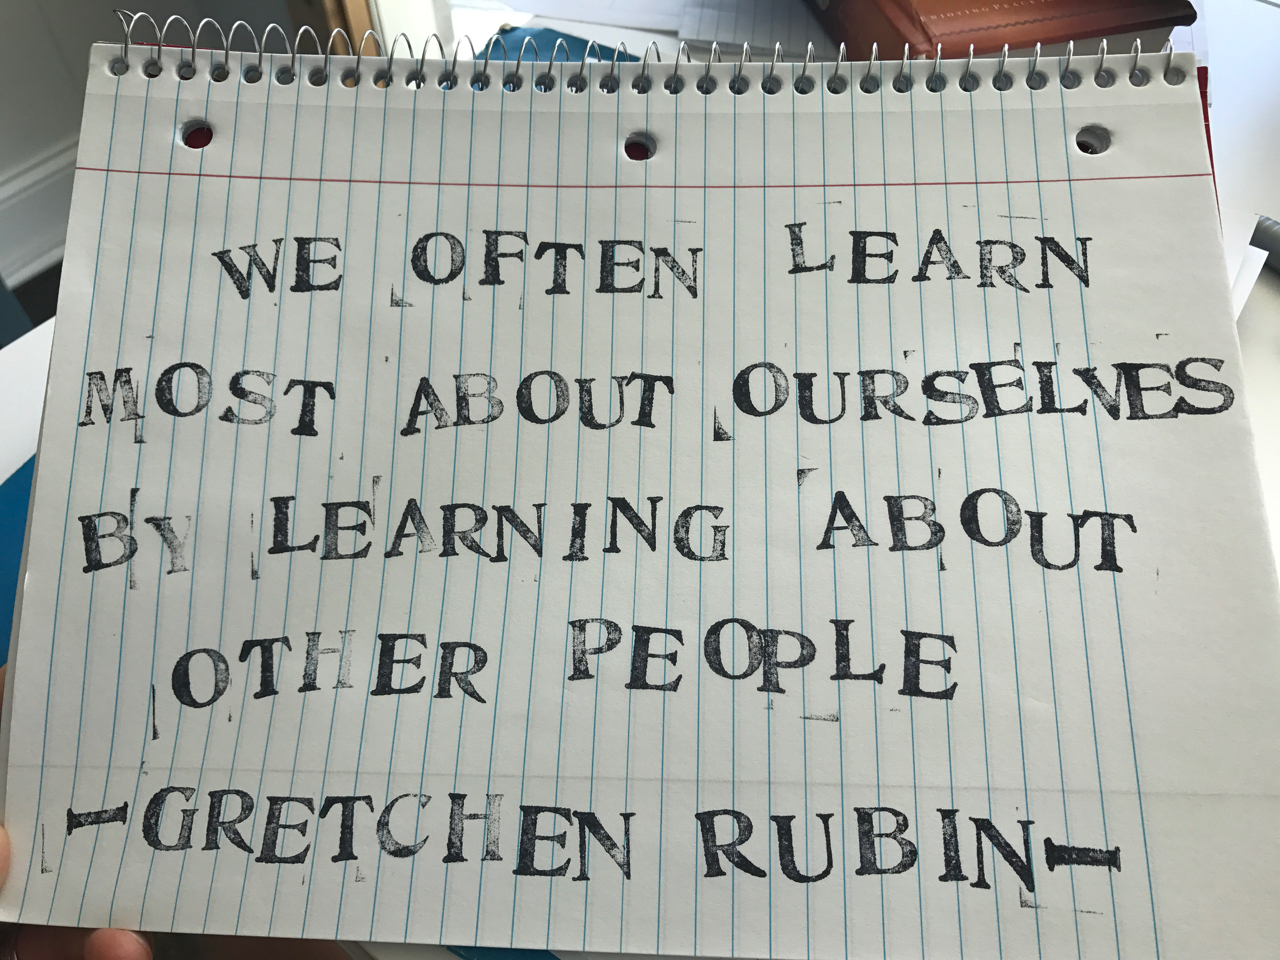 ENJOYING PEACE
WE OFTEN LEARN
MOST ABOUT OURSELVES
BY LEARNING ABOUT
OTHER PEOPLE
-GRETCHEN RUBIN-